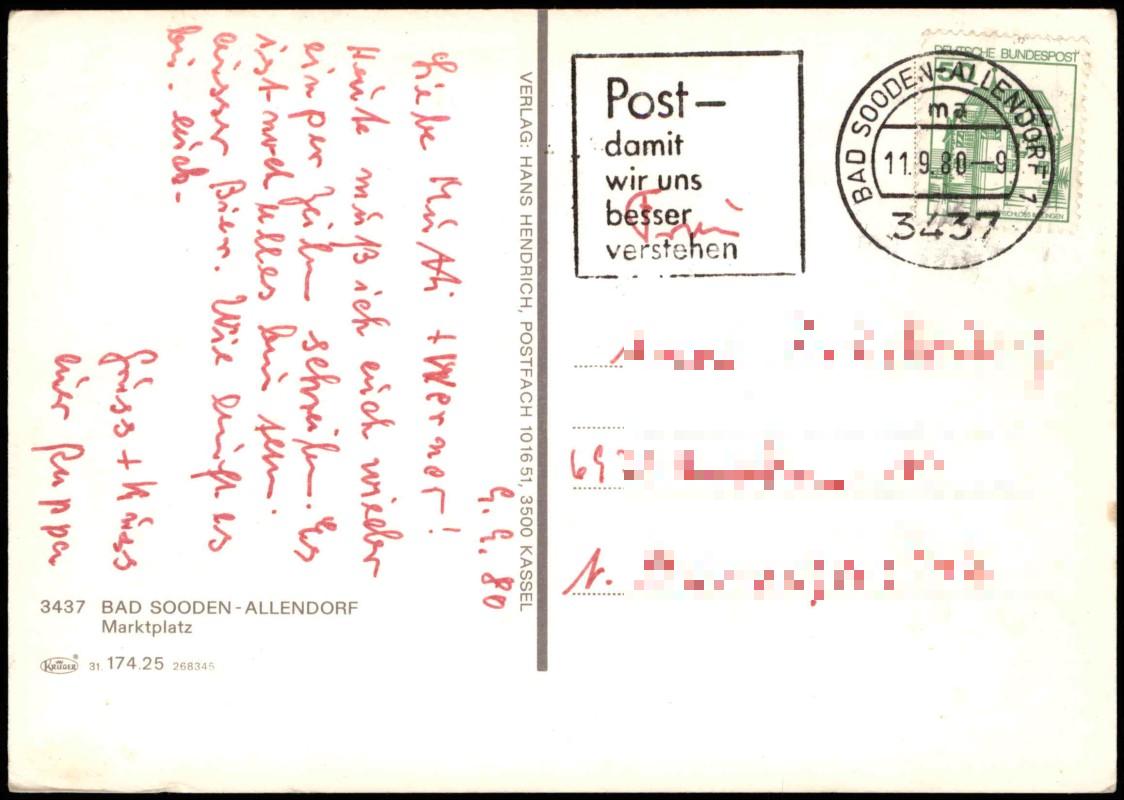 9.9.80
Liebe Mutti + Werner!
Heute muß ich euch wieder
ein per Zeiln schreiben. Es
ist noch alles beim
Bier. Wie läuft es
bei euch.
Gruss + Kuss
euer Pappa
VERLAG: HANS HENDRICH, POSTFACH 101651, 3500 KASSEL
3437 BAD SOODEN-ALLENDORF
Marktplatz
KRÜGER 31. 174.25 268345
Post –
damit
wir uns
besser
verstehen
DEUTSCHE BUNDESPOST
50
BAD SOODEN-ALLENDORF 1
ma
11.9.80–9
3437